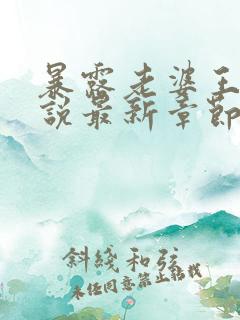 暴露老婆王
说最新章節
斜綫和弦
未经同意禁止转载